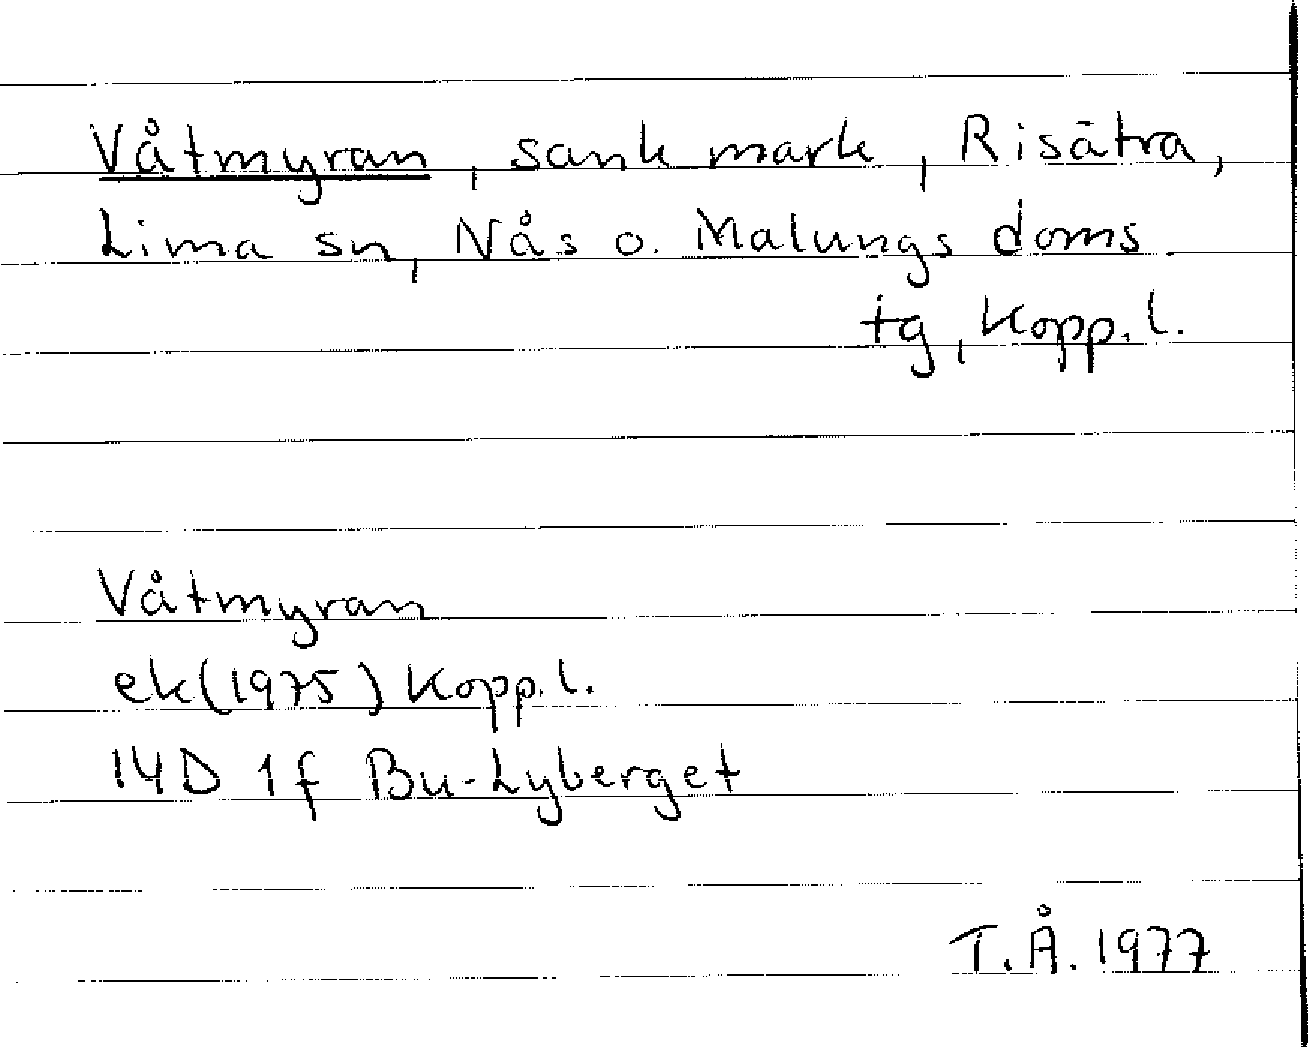 Våtmyran, sank mark, Risätra,
Lima sn, Nås o. Malungs doms
tg, Kopp. l.
Våtmyran
ek (1975) Kopp. l.
14D 1f Bu-Lyberget
T.Å. 1977